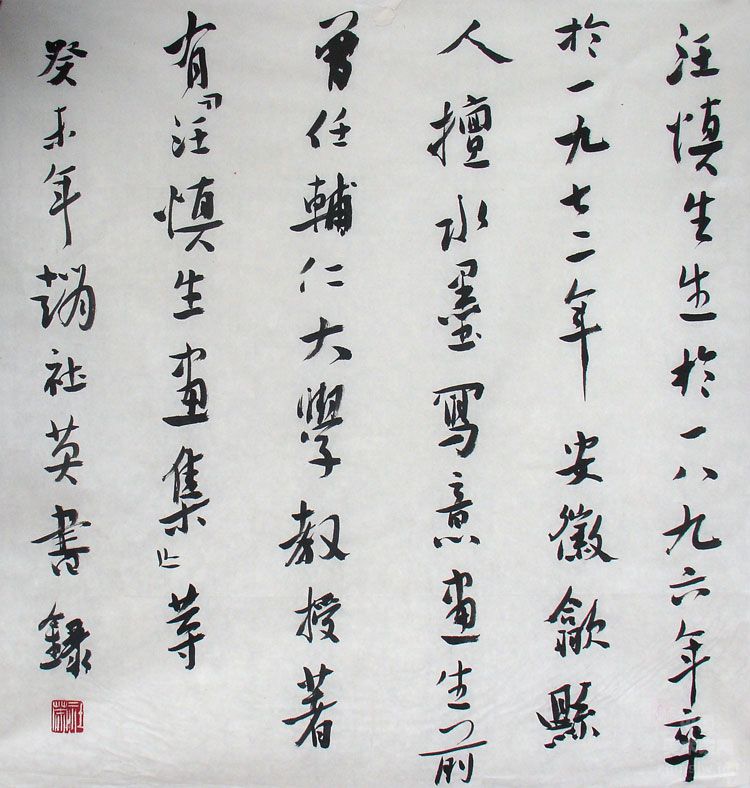 汪慎生生於一八九六年卒
於一九七二年安徽歙縣
人擅水墨寫意畫生前
曾任輔仁大學教授著
有『汪慎生畫集』等
癸未年趙社英書錄